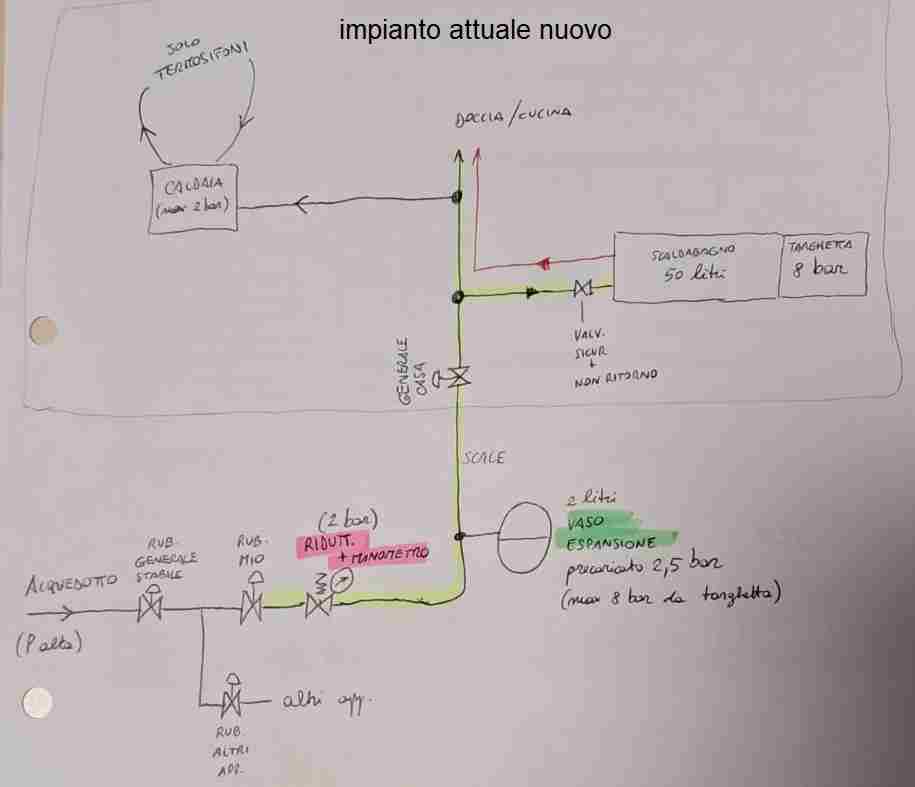 impianto attuale nuovo
SOLO
TERMOSIFONI
DOCCIA/CUCINA
CALDAIA
(max 2 bar)
SCALDABAGNO
50 litri
TARGHETTA
8 bar
VALV.
SICUR
+
NON RITORNO
GENERALE
CASA
SCALE
2 litri
VASO
ESPANSIONE
precaricato 2,5 bar
(max 8 bar da targhetta)
(2 bar)
RIDUTT.
+ MANOMETRO
RUB.
MIO
RUB.
GENERALE
STABILE
ACQUEDOTTO
(P alta)
altri app.
RUB.
ALTRI
APP.